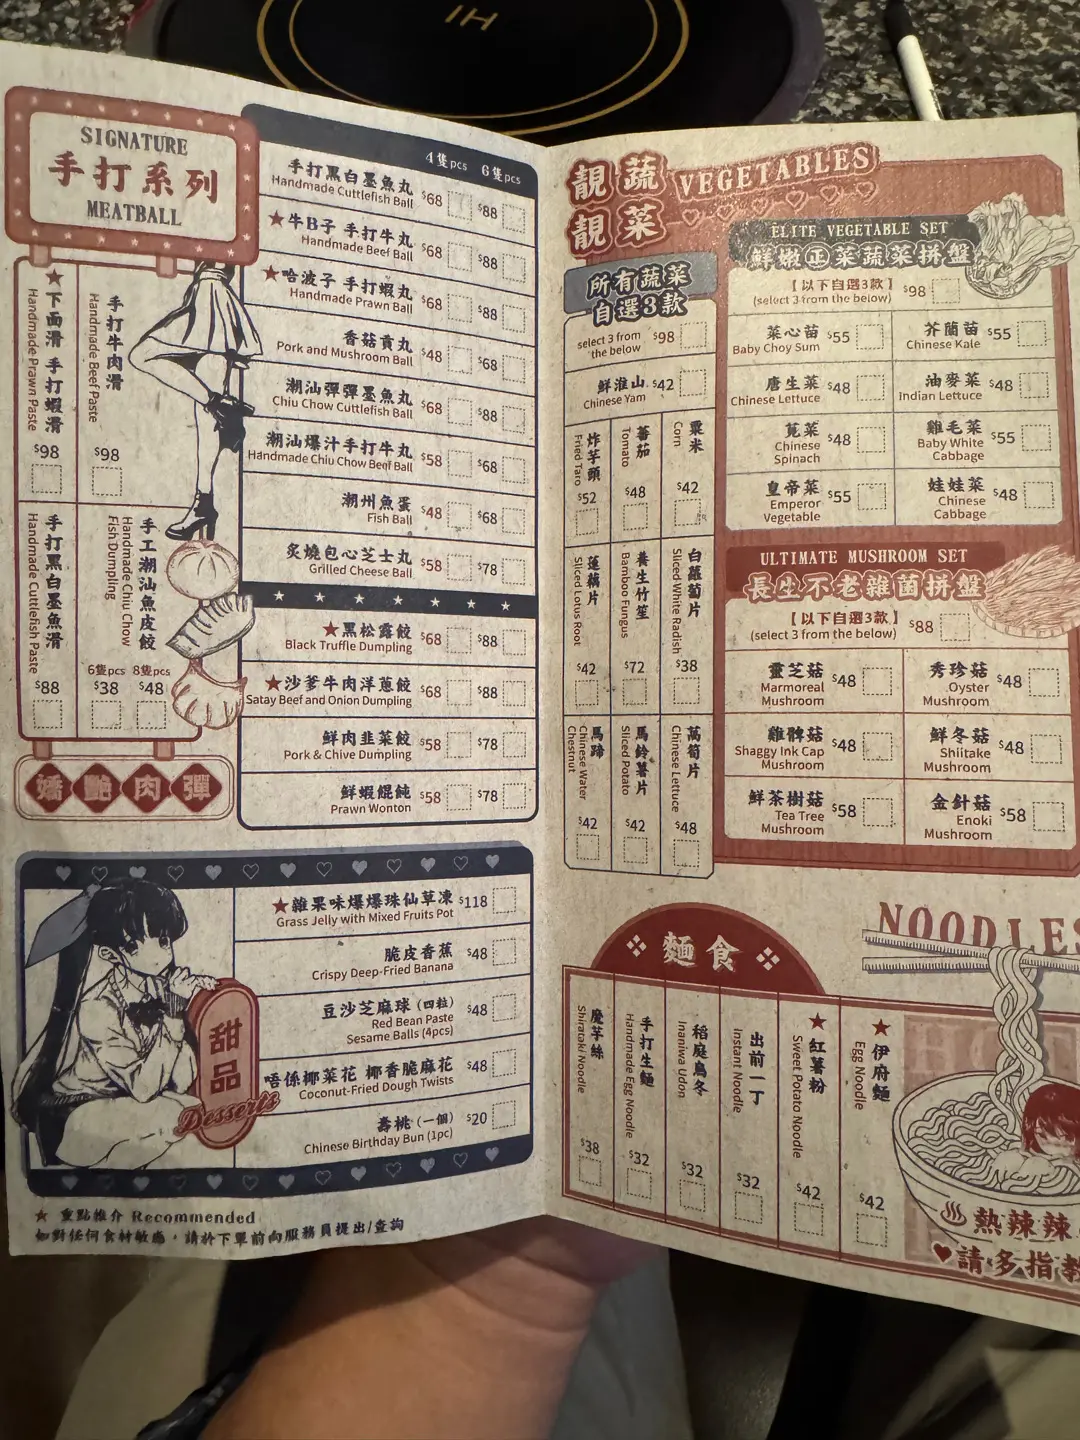 IH
SIGNATURE
手打系列
MEATBALL
★下面滑 手打蝦滑
Handmade Prawn Paste
$98
手打牛肉滑
Handmade Beef Paste
$98
手打黑白墨魚滑
Handmade Cuttlefish Paste
$88
手工潮汕魚皮餃
Handmade Chiu Chow
Fish Dumpling
6隻pcs 8隻pcs
$38 $48
嬌艷肉彈
4隻pcs 6隻pcs
手打黑白墨魚丸 $68 $88
Handmade Cuttlefish Ball
★牛B子 手打牛丸 $68 $88
Handmade Beef Ball
★哈波子 手打蝦丸 $68 $88
Handmade Prawn Ball
香菇貢丸 $48 $68
Pork and Mushroom Ball
潮汕彈彈墨魚丸 $68 $88
Chiu Chow Cuttlefish Ball
潮汕爆汁手打牛丸 $58 $68
Handmade Chiu Chow Beef Ball
潮州魚蛋 $48 $68
Fish Ball
炙燒包心芝士丸 $58 $78
Grilled Cheese Ball
★黑松露餃 $68 $88
Black Truffle Dumpling
★沙爹牛肉洋蔥餃 $68 $88
Satay Beef and Onion Dumpling
鮮肉韭菜餃 $58 $78
Pork & Chive Dumpling
鮮蝦餛飩 $58 $78
Prawn Wonton
甜品
Desserts
★雜果味爆爆珠仙草凍 $118
Grass Jelly with Mixed Fruits Pot
脆皮香蕉 $48
Crispy Deep-Fried Banana
豆沙芝麻球（四粒） $48
Red Bean Paste
Sesame Balls (4pcs)
唔係椰菜花 椰香脆麻花 $48
Coconut-Fried Dough Twists
壽桃（一個） $20
Chinese Birthday Bun (1pc)
★ 重點推介 Recommended
如對任何食材敏感，請於下單前向服務員提出/查詢
靚蔬
靚菜
VEGETABLES
所有蔬菜
自選3款
select 3 from
the below
$98
鮮淮山 $42
Chinese Yam
炸芋頭
Fried Taro
$52
蕃茄
Tomato
$48
粟米
Corn
$42
蓮藕片
Sliced Lotus Root
$42
養生竹笙
Bamboo Fungus
$72
白蘿蔔片
Sliced White Radish
$38
馬蹄
Chinese Water
Chestnut
$42
馬鈴薯片
Sliced Potato
$42
萵筍片
Chinese Lettuce
$48
ELITE VEGETABLE SET
鮮嫩正菜蔬菜拼盤
【以下自選3款】 $98
(select 3 from the below)
菜心苗 $55
Baby Choy Sum
芥蘭苗 $55
Chinese Kale
唐生菜 $48
Chinese Lettuce
油麥菜 $48
Indian Lettuce
莧菜 $48
Chinese
Spinach
雞毛菜 $55
Baby White
Cabbage
皇帝菜 $55
Emperor
Vegetable
娃娃菜 $48
Chinese
Cabbage
ULTIMATE MUSHROOM SET
長生不老雜菌拼盤
【以下自選3款】 $88
(select 3 from the below)
靈芝菇 $48
Marmoreal
Mushroom
秀珍菇 $48
Oyster
Mushroom
雞髀菇 $48
Shaggy Ink Cap
Mushroom
鮮冬菇 $48
Shiitake
Mushroom
鮮茶樹菇 $58
Tea Tree
Mushroom
金針菇 $58
Enoki
Mushroom
麵食
NOODLES
魔芋絲
Shirataki Noodle
$38
手打生麵
Handmade Egg Noodle
$32
稻庭烏冬
Inaniwa Udon
$32
出前一丁
Instant Noodle
$32
★紅薯粉
Sweet Potato Noodle
$42
★伊府麵
Egg Noodle
$42
熱辣辣
♥請多指教